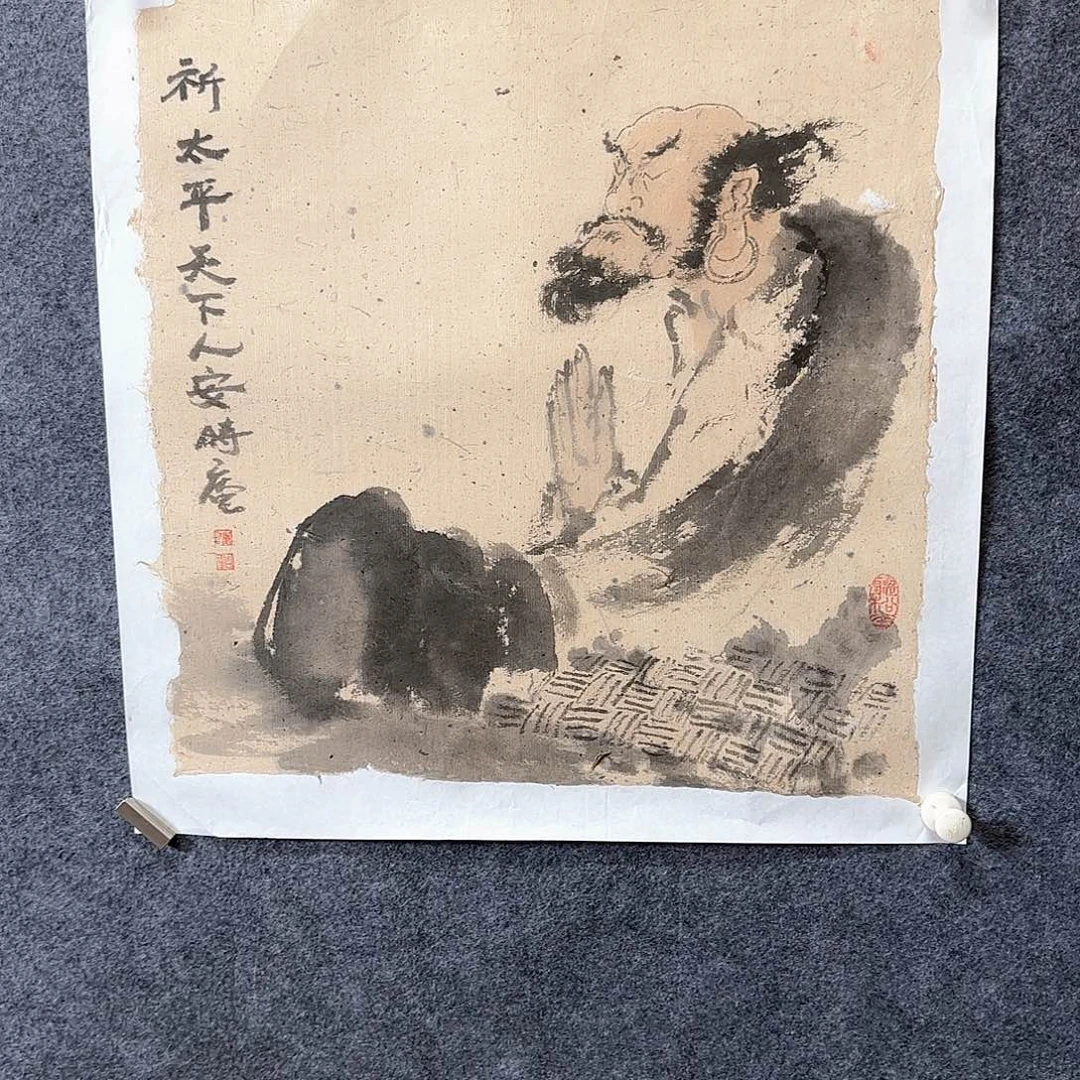 祈太平天下人安時庵